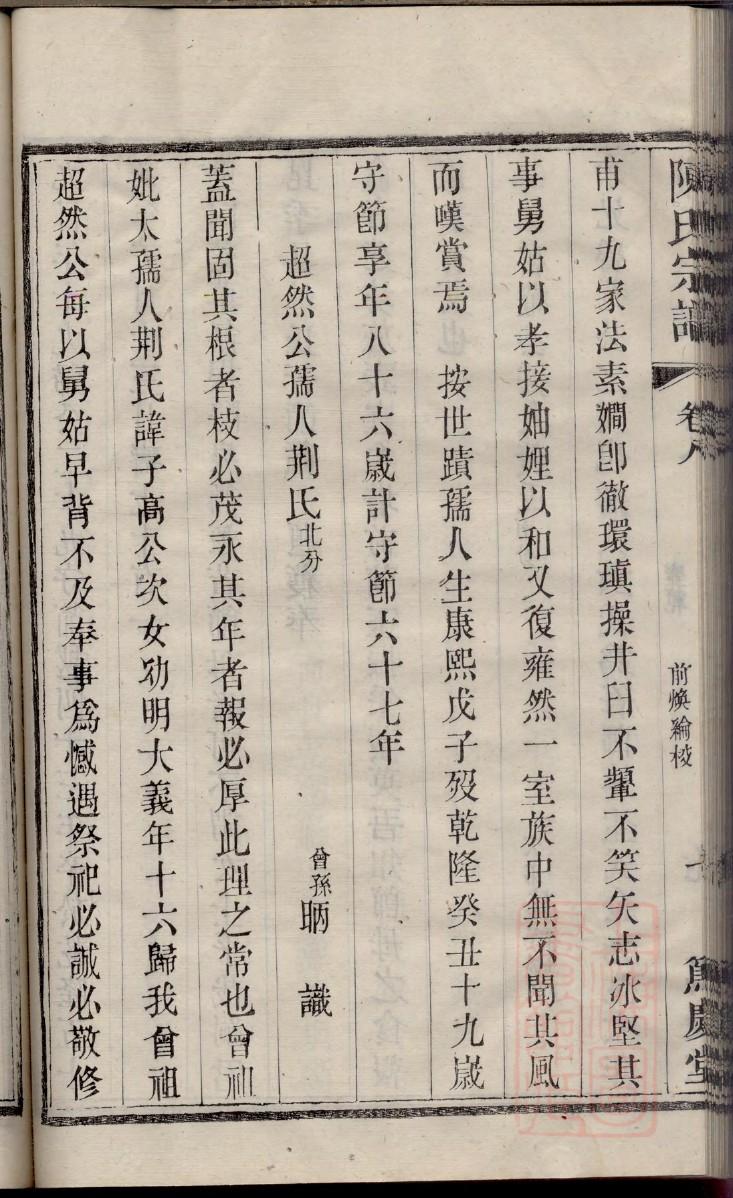 陳氏宗譜 卷八 前煥綸梭 篤慶堂
甫十九家法素嫻卽徹環瑱操井臼不顰不笑矢志冰堅其
事舅姑以孝接妯娌以和又復雍然一室族中無不聞其風
而嘆賞焉 按世蹟孺人生康熙戊子歿乾隆癸丑十九歲
守節享年八十六歲計守節六十七年
超然公孺人荆氏北分
曾孫昞 識
蓋聞固其根者枝必茂永其年者報必厚此理之常也曾祖
妣太孺人荆氏諱子高公次女幼明大義年十六歸我曾祖
超然公每以舅姑早背不及奉事爲憾遇祭祀必誠必敬修